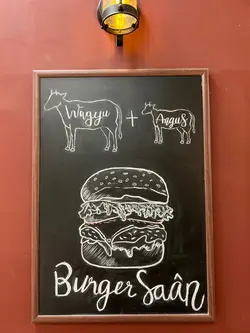 Wagyu + Angus
Burger Saân